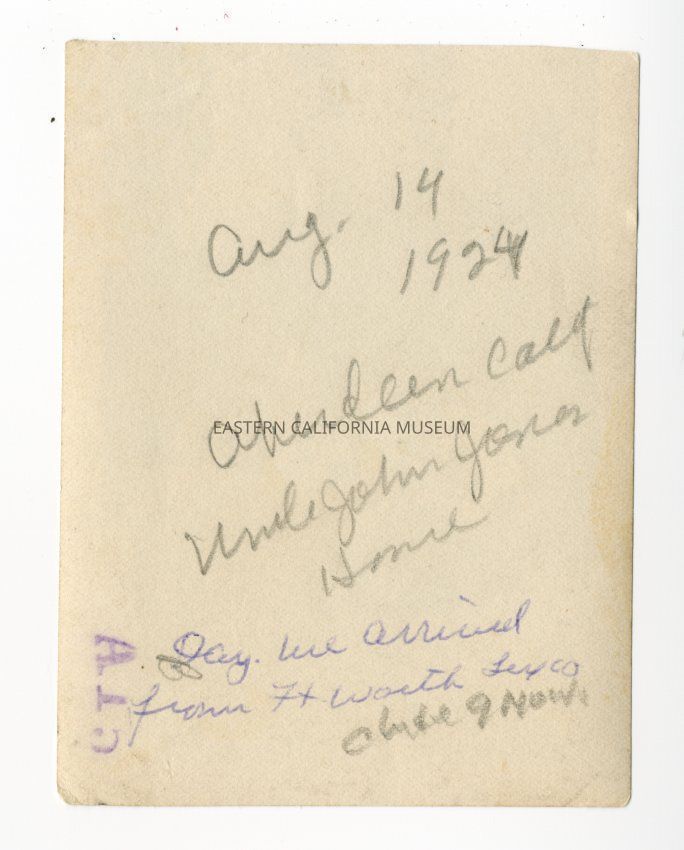 Aug. 14
1924
Aberdeen Calif
EASTERN CALIFORNIA MUSEUM
Uncle John Jones
Home
Day. we arrived
from Ft Worth